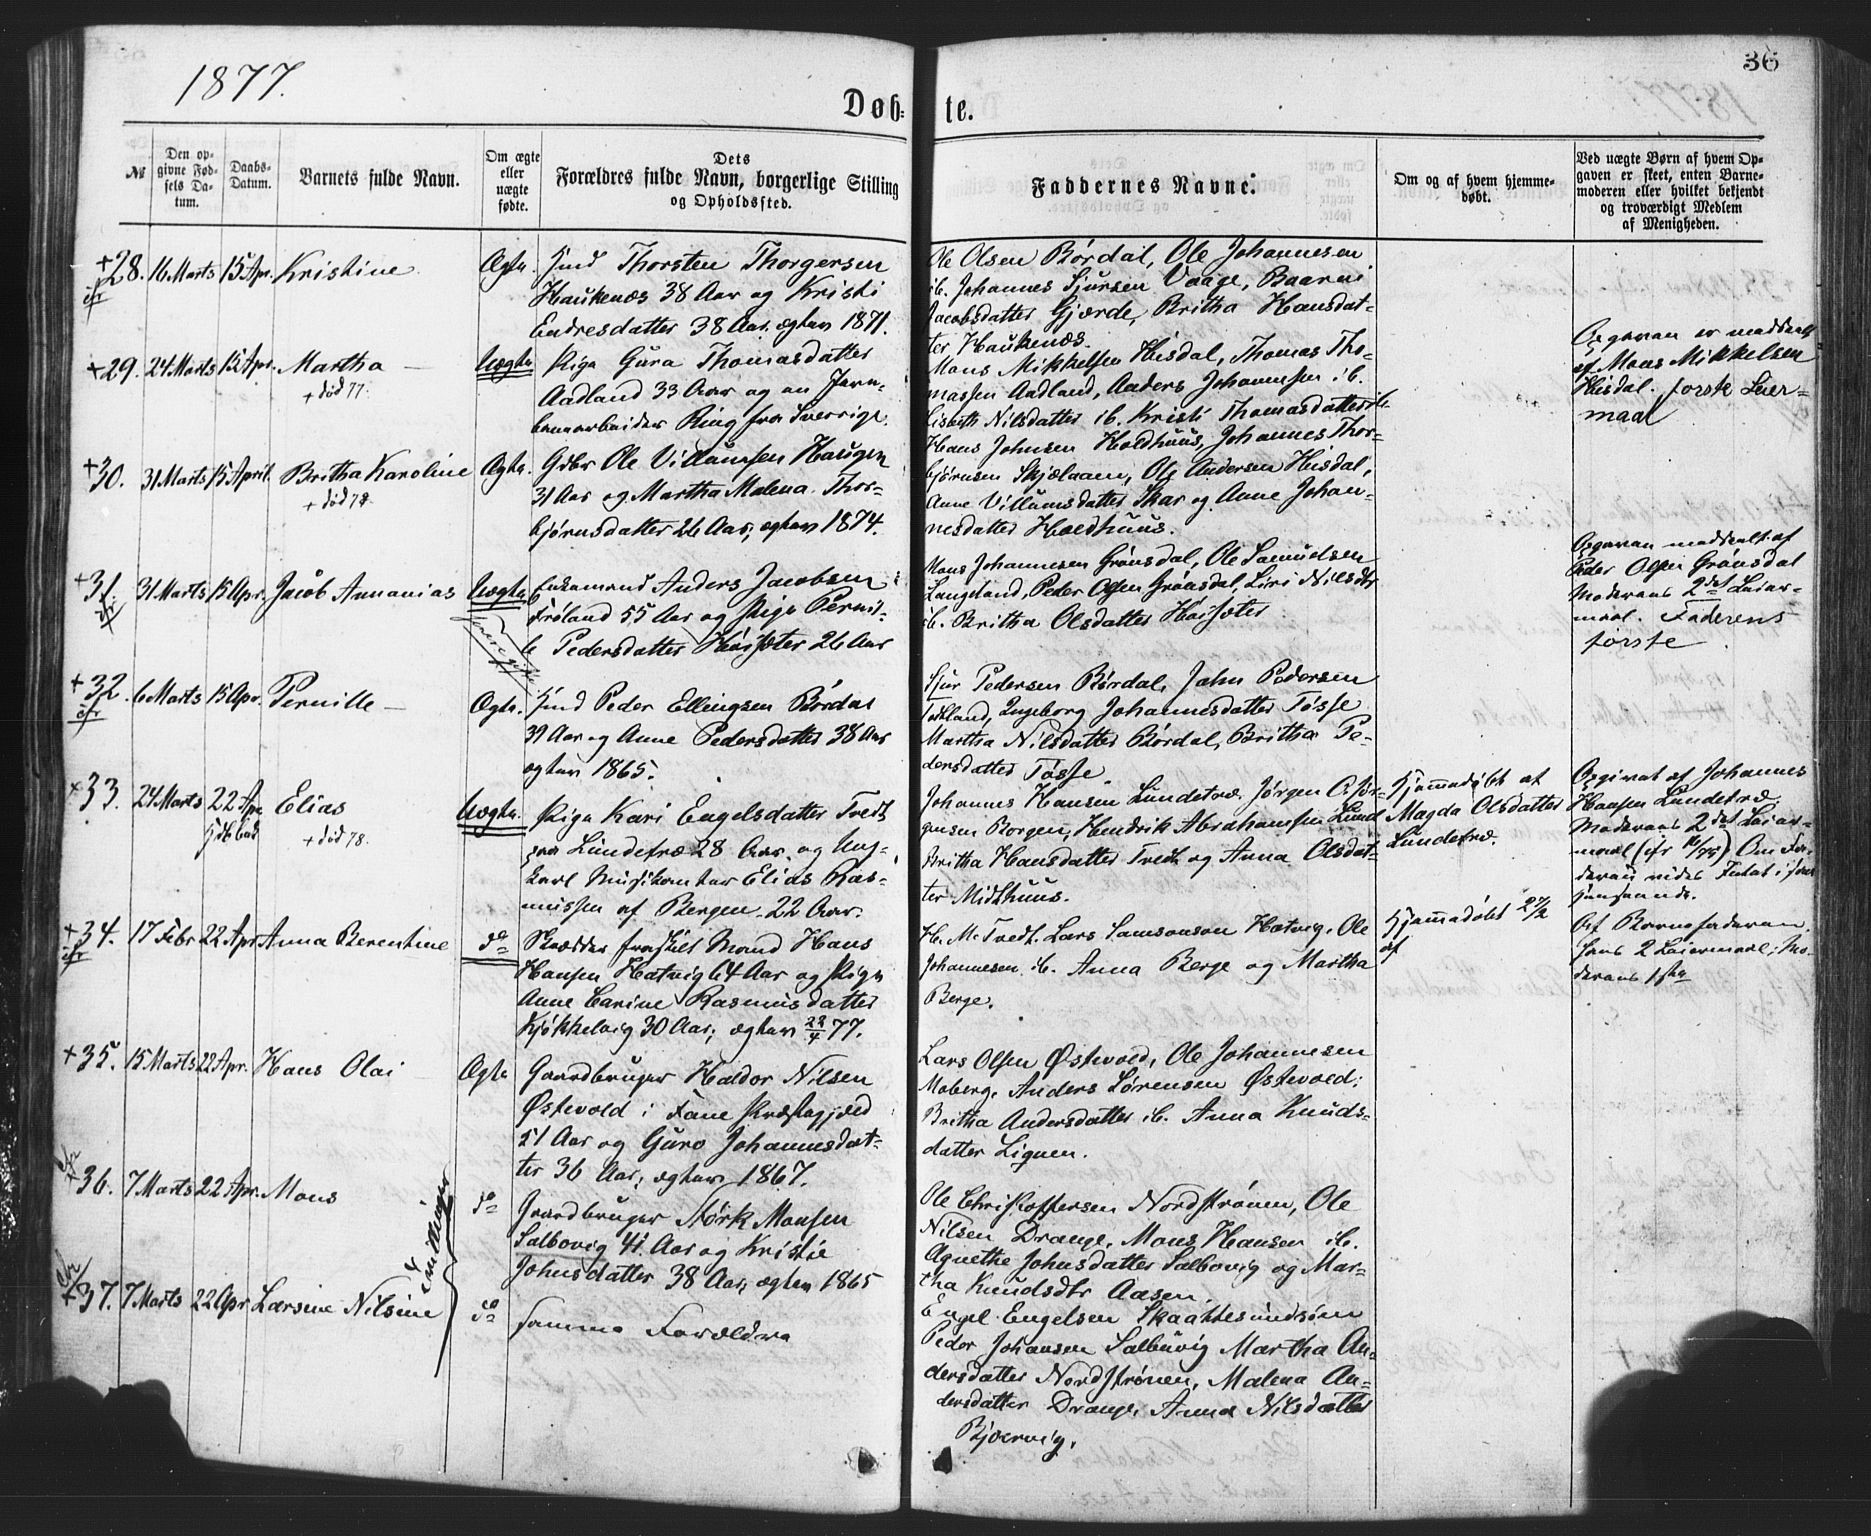 1877.
36
Døb-
te.
№
Den op-
givne Fød-
sels Da-
tum.
Daabs-
Datum.
Barnets fulde Navn.
Om ægte
eller
uægte
fødte.
Dets
Forældres fulde Navn, borgerlige Stilling
og Opholdssted.
Faddernes Navne.
Om og af hvem hjemme-
døbt.
Ved uægte Børn af hvem Op-
gaven er skeet, enten Barne-
moderen eller hvilket bekjendt
og troværdigt Medlem
af Menigheden.
+28. 16 Marts 15 Apr. Kristine Ægte.
Thorsten Thorgersen
Haukenæs 38 Aar og Kristi
Endresdatter 38 Aar, ægtev 1871.
Ole Olsen Børdal, Ole Johannesen
ib. Johannes Sjursen Vaage, Baarni
Jacobsdatter Gjærde, Britha Hansdat-
ter Haukenæs.
+29. 24 Marts 15 Apr. Martha — Uægte
+ død 77.
Pige Gura Thomasdatter
Aadland 33 Aar og en Jern-
banearbeider Ring fra Sverrige.
Mons Mikkelsen Hisdal, Thomas Tho-
massen Aadland, Anders Johannesen ib.
Lisbeth Nilsdatter ib. Kristi Thomasdatter ib.
Opgaven er meddeelt
af Mons Mikkelsen
Hisdal. første Leier-
maal
+30. 31 Marts 15 April. Britha Karoline Ægte.
+ død 78.
Gdbr Ole Villumsen Haugen
31 Aar og Martha Malena Thor-
bjørnsdatter 26 Aar, ægtev 1874.
Hans Johnsen Holdhuus, Johannes Thor-
bjørnsen Skjælaaen, Ole Andersen Hisdal,
Anne Villumsdatter Skar og Anne Johan-
nesdatter Holdhuus.
+31. 31 Marts 15 Apr. Jacob Annanias Uægte
Enkemand Anders Jacobsen
Frøland 55 Aar og Pige Pernil-
le Pedersdatter Haisæter 26 Aar
Mons Johannesen Grønsdal, Ole Samuelsen
Langeland, Peder Olsen Grønsdal, Siri Nilsdtr
ib. Britha Olsdatter Haisæter
Opgaven meddeelt af
Peder Olsen Grønsdal
Moderens 2det Leier-
maal. Faderens
første
+32. 6 Marts 15 Apr. Pernille — Ægte.
Peder Ellingsen Børdal
39 Aar og Anne Pedersdatter 38 Aar
ægtev 1865.
Sjur Pedersen Børdal, John Pedersen
Tokland, Ingeborg Johannesdatter Tøsse
Martha Nilsdatter Børdal, Britha Pe-
dersdatter Tøsse.
+33. 24 Marts 22 Apr Elias Uægte.
+ død 78.
Pige Kari Engelsdatter Tvedt
Lundetræ 28 Aar og Ung-
karl Musikanter Elias Ras-
mussen af Bergen 22 Aar.
Johannes Hansen Lundetræ, Jørgen O. Jør-
gensen Borgen, Hendrik Abrahamsen Lund
Britha Hansdatter Tvedt og Anna Olsdat-
ter Midthuus.
Hjemmedøbt af
Magda Olsdatter
Lundetræ.
Opgivet af Johannes
Hansen Lundetræ.
Moderens 2det Leier-
maal
+34. 17 Febr 22 Apr Anna Berentine do
Skrædder fraskilt Mand Hans
Hansen Hatvig 64 Aar og Pige
Anne Carine Rasmusdatter
Kjøkkelvig 30 Aar; ægtev 22/4 77.
H. M. Tvedt. Lars Samsonsen Hatvig, Ole
Johannesen ib. Anna Berge og Martha
Berge.
Hjemmedøbt 27/2
af
Af Barnefaderen,
hans 2 Leiermaal; Mo-
derens 1ste
+35. 15 Marts 22 Apr. Hans Olai Ægte
Gaardbruger Haldor Nilsen
Østevold i Fane Præstegjæld
51 Aar og Guro Johannesdat-
ter 36 Aar, ægtev 1867.
Lars Olsen Østevold, Ole Johannesen
Moberg, Anders Sørensen Østevold;
Britha Andersdatter ib. Anna Knuds-
datter Liguen.
+36. 7 Marts 22 Apr. Mons do
Tvillinger
Gaardbruger Størk Monsen
Salbovig 41 Aar og Kristie
Johnsdatter 38 Aar, ægtev 1865
Ole Christoffersen Nordstrønen, Ole
Nilsen Drange, Mons Hansen ib.
Agnethe Johnsdatter Salbovig og Mar-
tha Knudsdtr Aasen.
+37. 7 Marts 22 Apr Larsine Nilsine do
Samme Forældre
Engel Engelsen Skaattesundsøen
Peder Johansen Salbuvig Martha An-
dersdatter Nordstrønen, Malena An-
dersdatter Drange, Anna Nilsdatter
Bjørnvig.